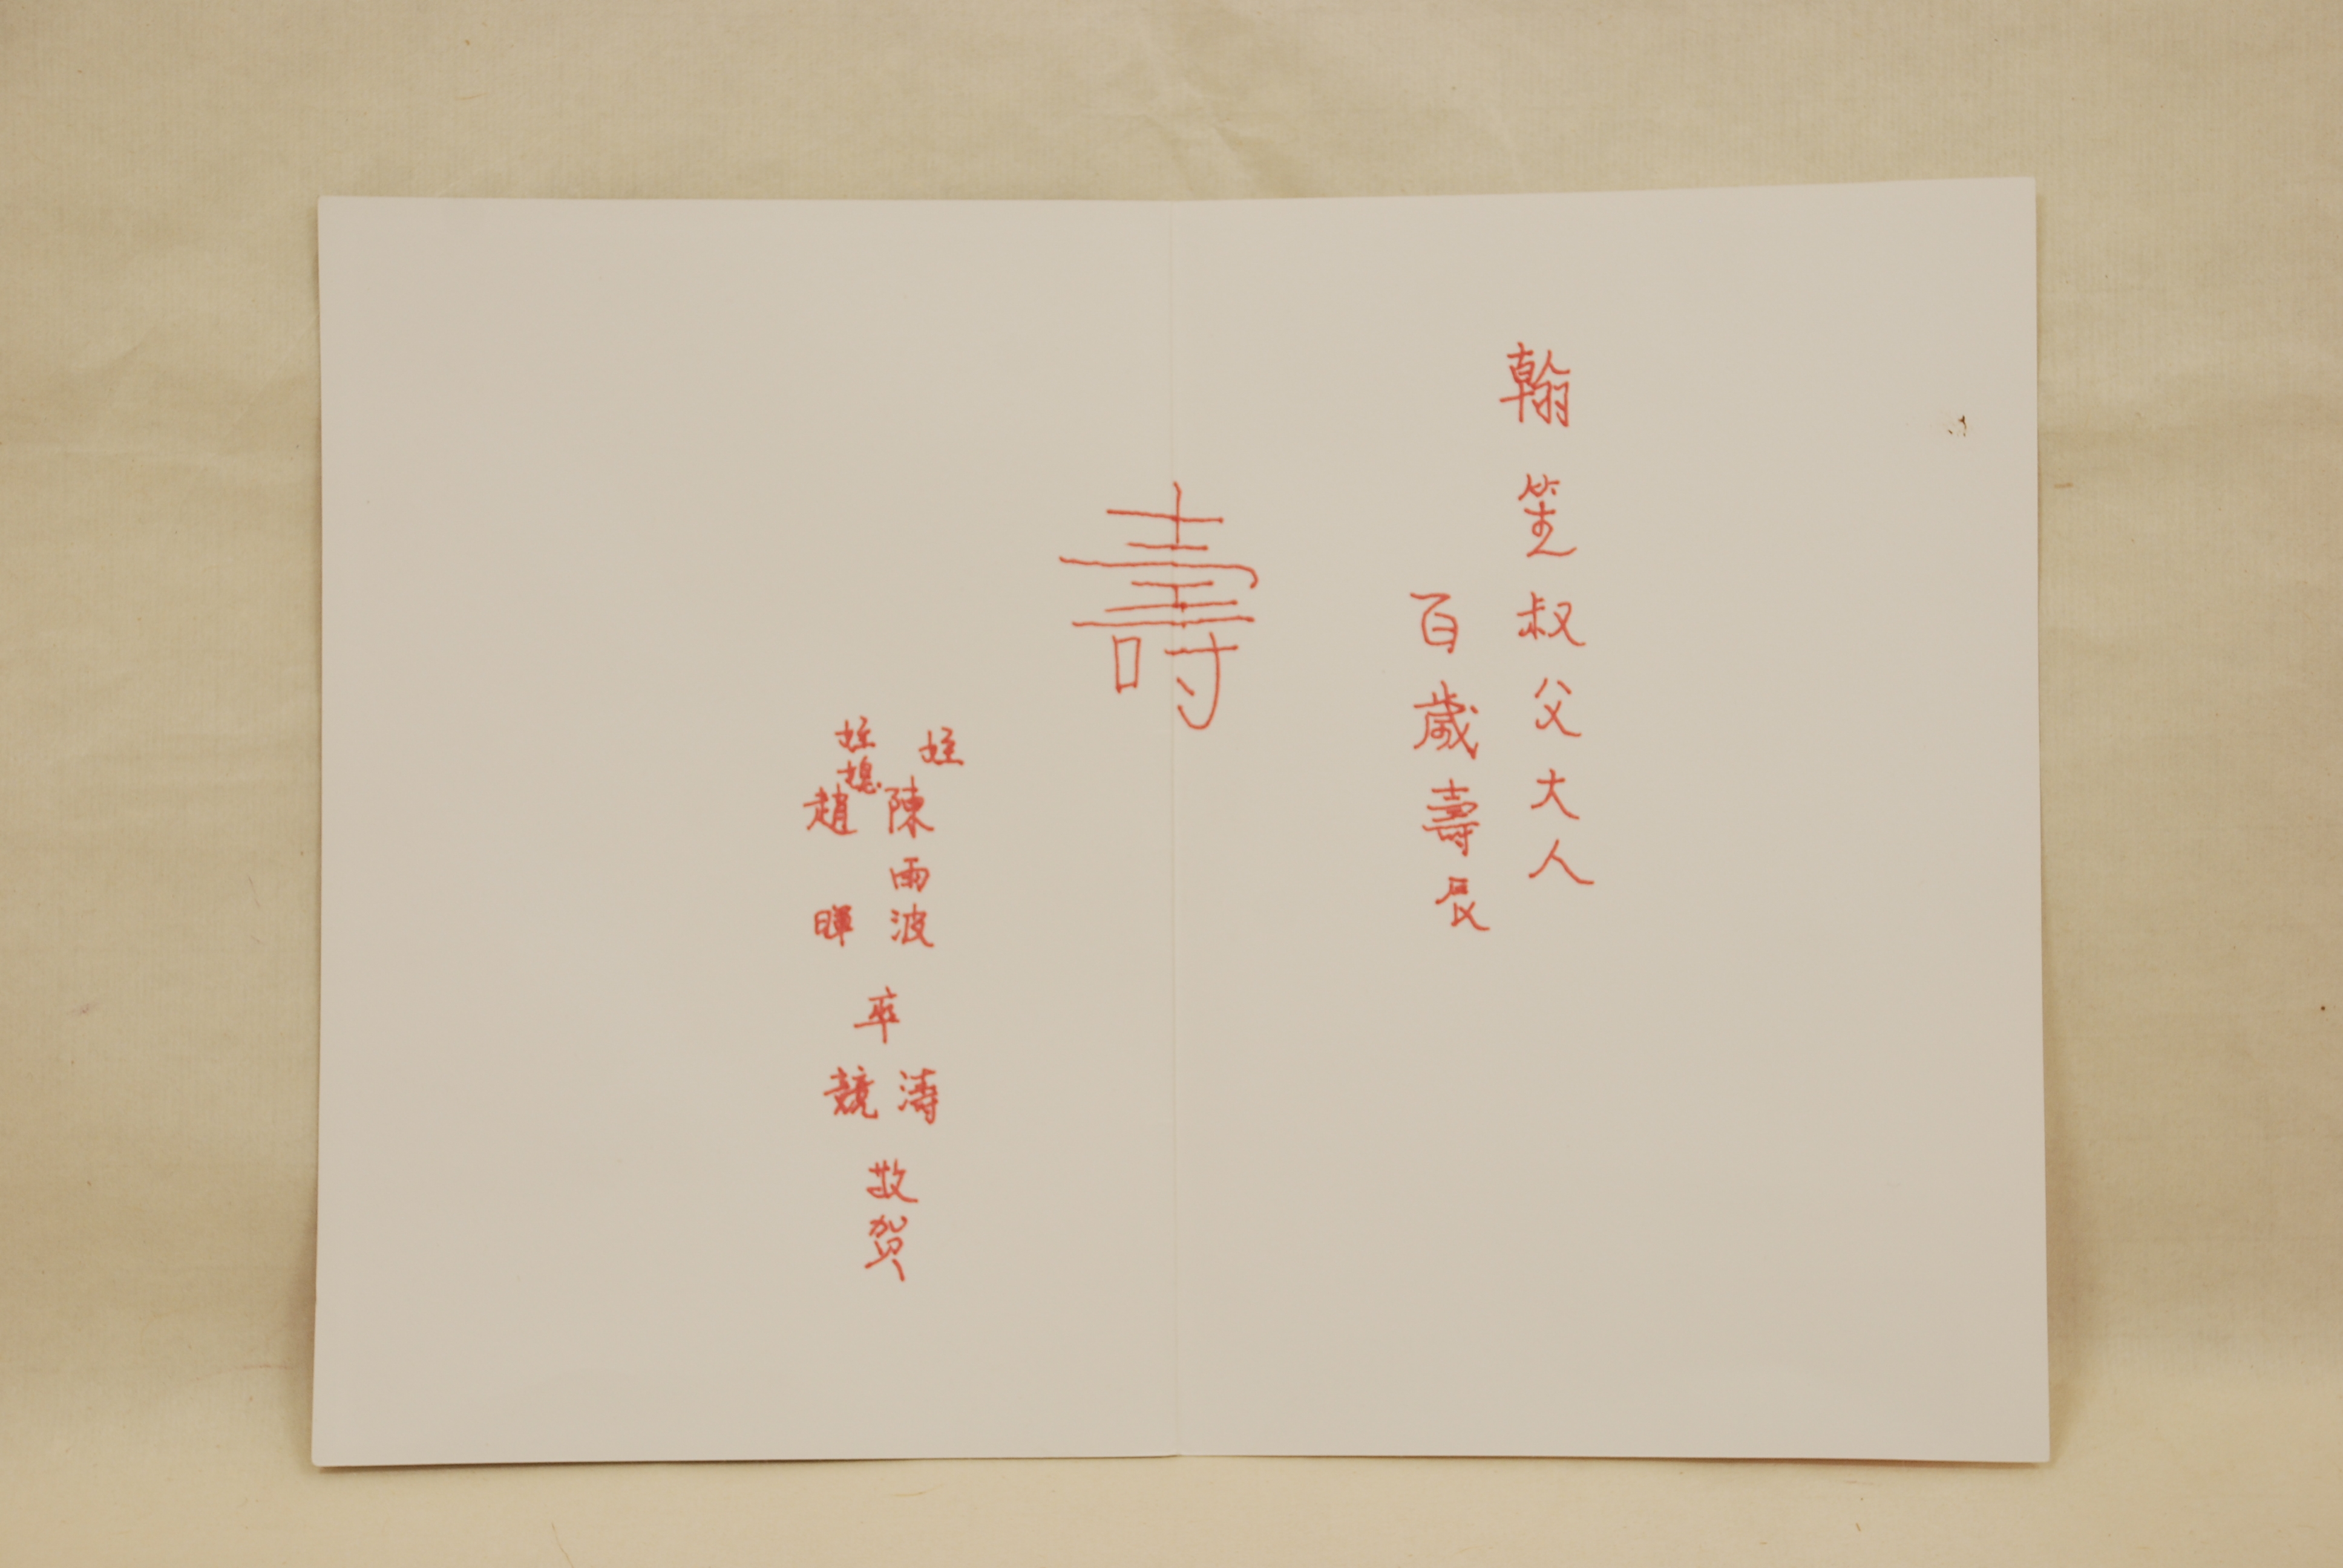 翰笙叔父大人
百歲壽辰
壽
姪陳雨波
姪媳趙暉
率
涛
競
敬賀